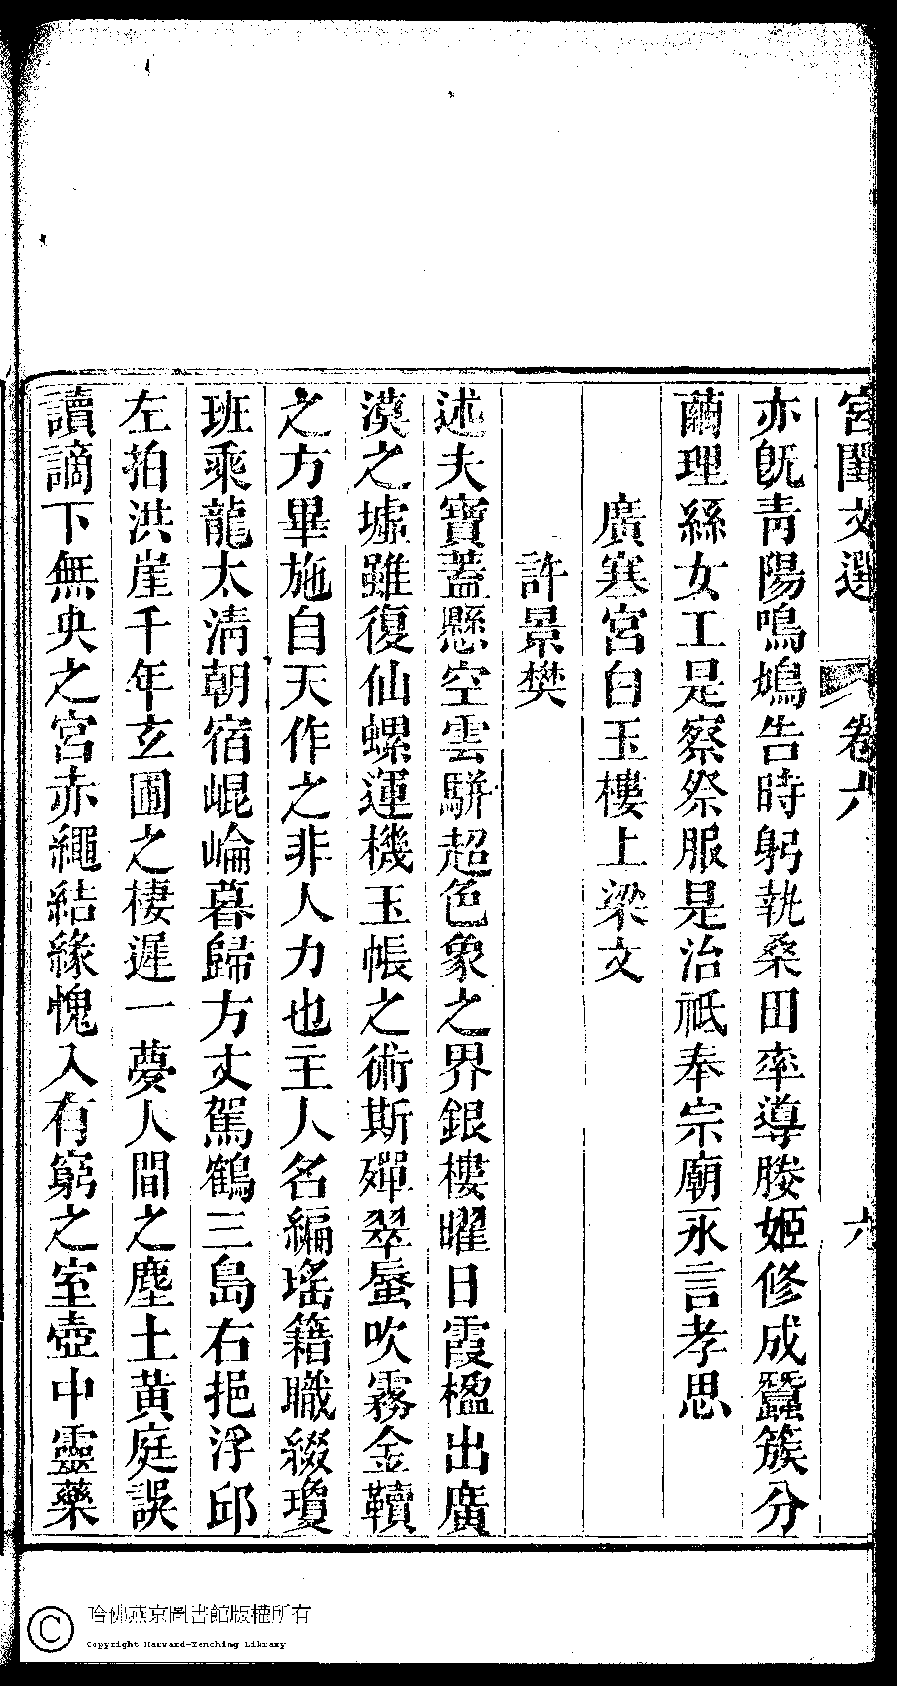 宮閨文選 卷六 六
亦旣靑陽鳴鳩告時躬執桑田率導媵姬修成蠶簇分
繭理絲女工是察祭服是治祗奉宗廟永言孝思
廣寒宮白玉樓上梁文
許景樊
述夫寶蓋懸空雲駢超色象之界銀樓曜日霞楹出廣
漠之墟雖復仙螺運機玉帳之術斯殫翠蜃吹霧金犢
之方畢施自天作之非人力也主人名編瑤籍職綴瓊
班乘龍太淸朝宿崐崙暮歸方丈駕鶴三島右挹浮邱
左拍洪崖千年玄圃之棲遲一夢人間之塵土黃庭誤
讀謫下無央之宮赤繩結緣愧入有窮之室壺中靈藥
哈佛燕京圖書館版權所有
Copyright Harvard-Yenching Library